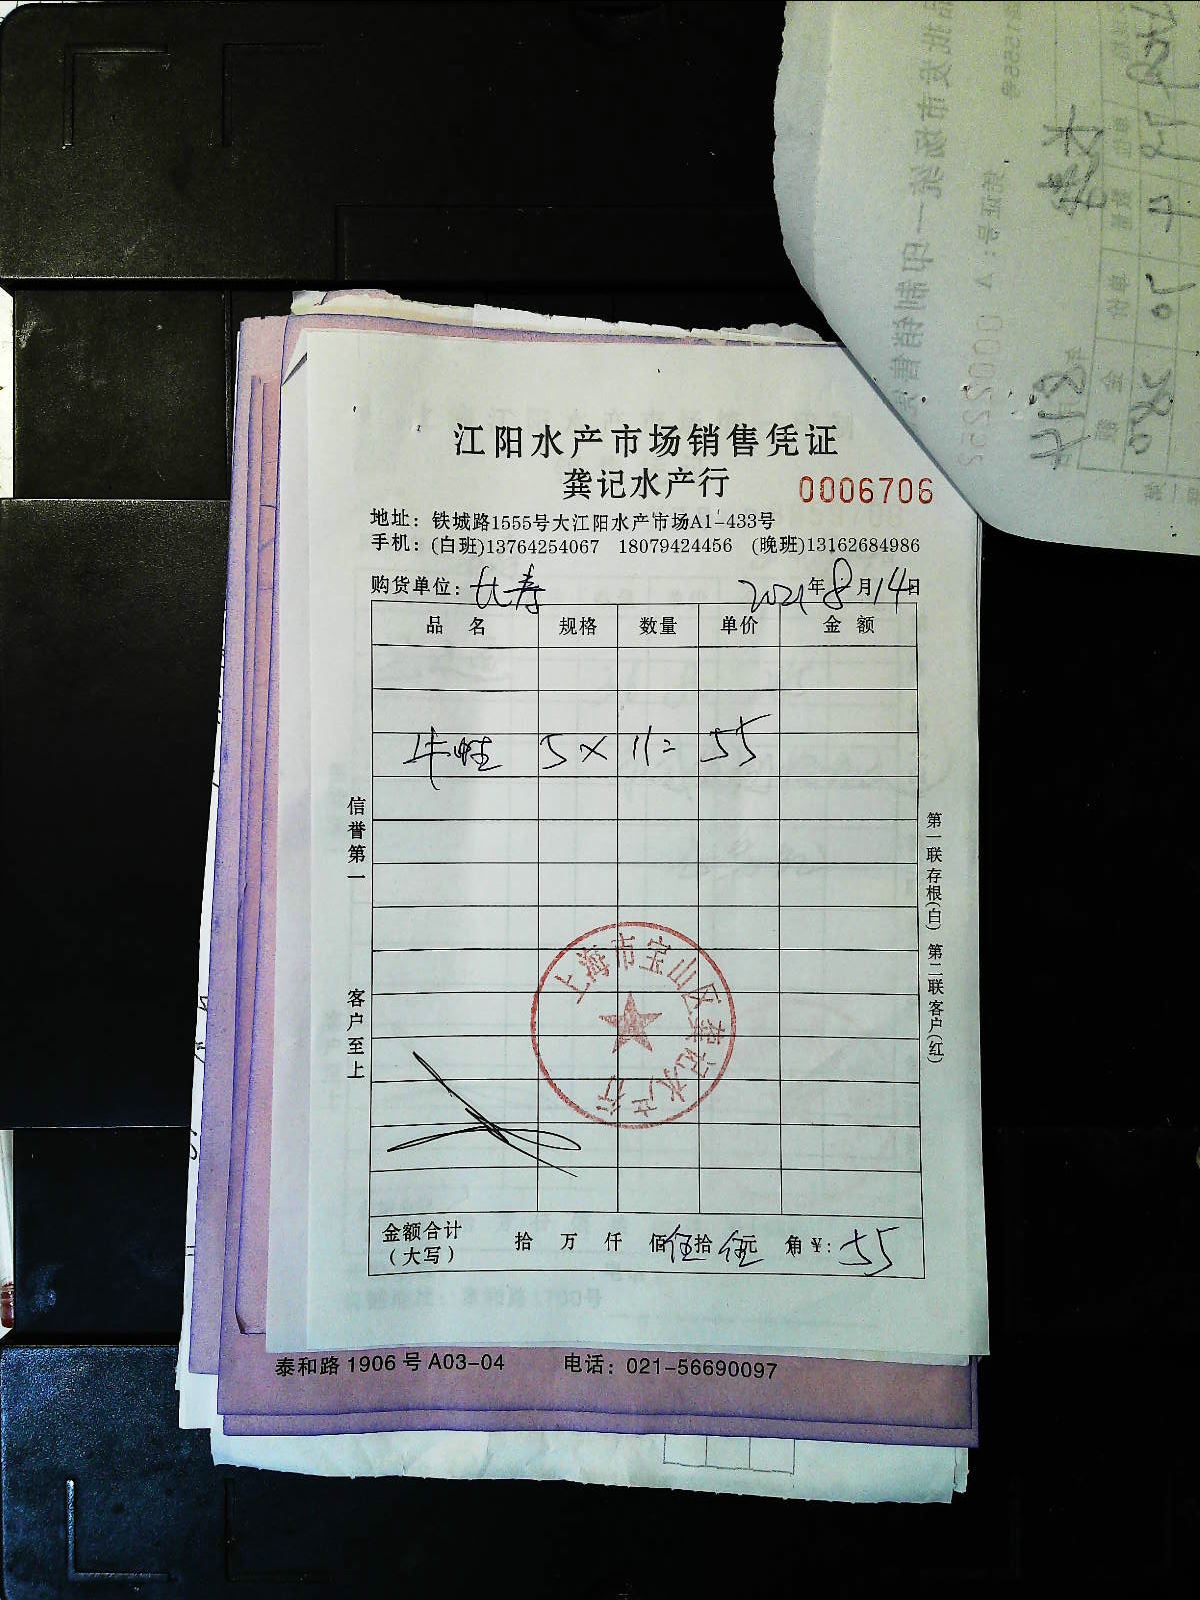 江阳水产市场销售凭证
龚记水产行
0006706
地址：铁城路1555号大江阳水产市场A1-433号
手机：(白班)13764254067 18079424456 (晚班)13162684986
购货单位：长寿 2021年8月14日
品名 规格 数量 单价 金额
牛蛙 5× 11= 55
信誉第一
客户至上
第一联存根(白) 第二联客户(红)
上海市宝山区龚记水产行
金额合计（大写） 拾 万 仟 佰 伍拾 伍元 角 ¥: 55
泰和路1906号A03-04 电话：021-56690097